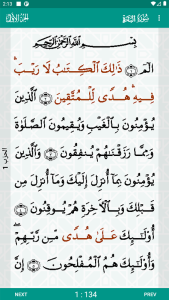 2:13
الجزء الأول
سُورَةُ البَقَرَة
بِسْمِ ٱللَّهِ ٱلرَّحْمَٰنِ ٱلرَّحِيمِ
الٓمٓ ١ ذَٰلِكَ ٱلْكِتَٰبُ لَا رَيْبَ ۛ
فِيهِ ۛ هُدًى لِّلْمُتَّقِينَ ٢ ٱلَّذِينَ
يُؤْمِنُونَ بِٱلْغَيْبِ وَيُقِيمُونَ ٱلصَّلَوٰةَ
وَمِمَّا رَزَقْنَٰهُمْ يُنفِقُونَ ٣ وَٱلَّذِينَ
يُؤْمِنُونَ بِمَآ أُنزِلَ إِلَيْكَ وَمَآ أُنزِلَ مِن
قَبْلِكَ وَبِٱلْءَاخِرَةِ هُمْ يُوقِنُونَ ٤
أُو۟لَٰٓئِكَ عَلَىٰ هُدًى مِّن رَّبِّهِمْ ۖ
وَأُو۟لَٰٓئِكَ هُمُ ٱلْمُفْلِحُونَ ٥
الحزب 1
NEXT 1 : 134 PREV